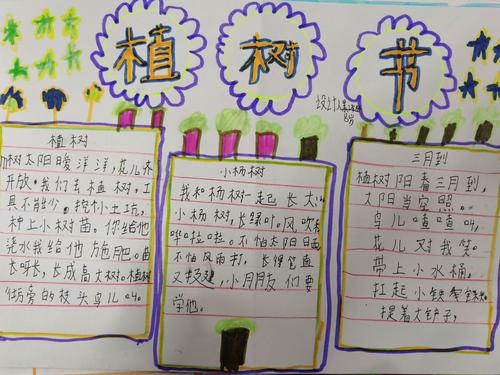 植树节
设计人
植树
树太阳暖洋洋,花儿齐
开放。我们去植树,工
具不能少。挖个土坑,
种上小树苗。你给他
浇水我给他施肥。苗
长呀长,长成高大树。植树
街旁的枝头鸟儿叫。
小杨树
我和杨树一起长大
小杨树,长绿叶。风吹
哗啦啦。不怕太阳日晒
不怕风雨打。长得笔直
又挺建,小月朋友们要
学他。
三月到
植树阳春三月到,
太阳当空照。
鸟儿喳喳叫,
花儿对我笑。
带上小水桶,
扛起小铁锹
提着大铲子,